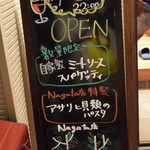 22:30
OPEN
数量限定
自家製 ミートソース
スパゲッティ
Nagata店 特製
アサリと貝類の
パスタ
Nagata店